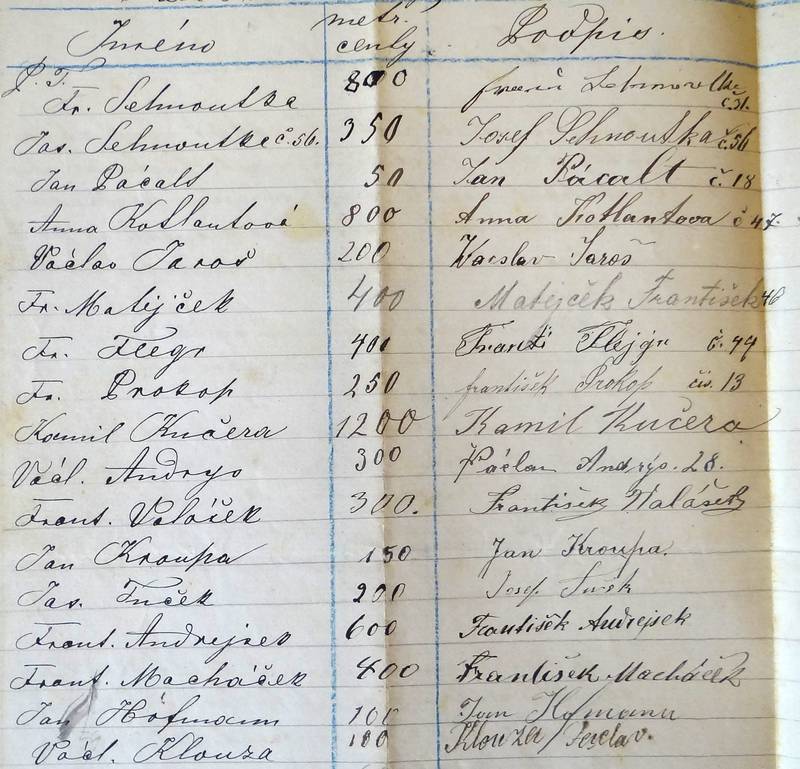 Jméno metr. centy. Podpis.
P. T.
Fr. Sehnoutka 800 č. 31.
Jos. Sehnoutka č. 56. 350 Josef Sehnoutka č. 56
Jan Pácalt 50 Jan Pácalt č. 18
Anna Kotlantová 800 Anna Kotlantova č 47
Václav Jaroš 200 Wacslav Jaroš
Fr. Matějček 400 Matějček František 46
Fr. Flegr 400 Franti Flejgr č. 44
Fr. Prokop 250 františek Prokop čis. 13
Kamil Kučera 1200 Kamil Kučera
Václ. Andrys 300 Václav Andrýs. 28.
Frant. Valášek 300. František Walášek
Jan Kroupa 150 Jan Kroupa.
Jos. Tuček 200 Josef
Frant. Andrejsek 600 František Andrejsek
Frant. Macháček 400 František Macháček
Jan Hofmann 100 Jan Hofmann
Václ. Klouza 100 Klouza Vaclav.